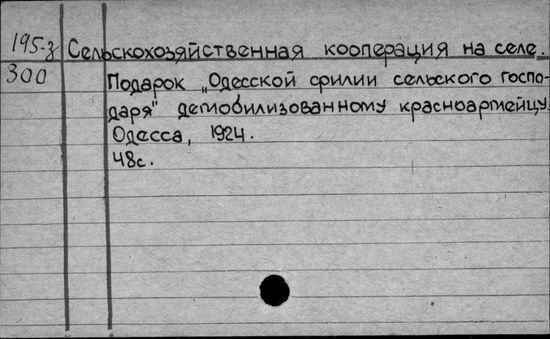 195-з Сельскохозяйственная кооперация на селе.
300 Подарок „Одесской филии сельского госпо-
даря" демобилизованному красноармейцу.
Одесса, 1924.
48с.